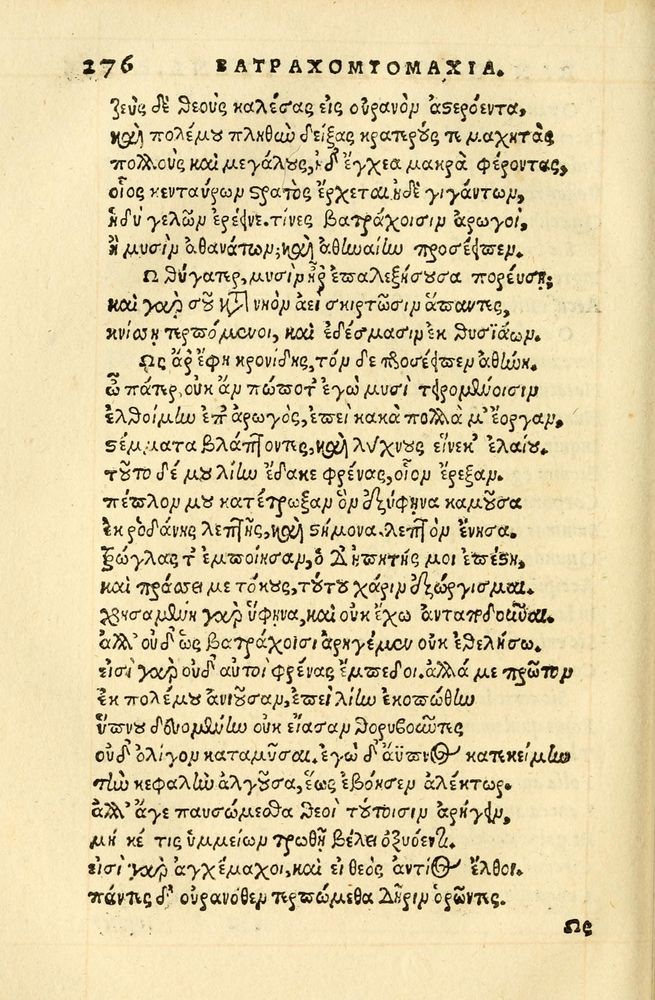 276 ΒΑΤΡΑΧΟΜΥΟΜΑΧΙΑ.
Ζεὺς δὲ θεοὺς καλέσας εἰς οὐρανὸν ἀστερόεντα,
καὶ πολέμου πληθὺν δείξας κρατερούς τε μαχητὰς
πολλοὺς καὶ μεγάλους, ἠδ' ἔγχεα μακρὰ φέροντας,
οἷος κενταύρων στρατὸς ἔρχεται ἠδὲ γιγάντων,
ἡδὺ γελῶν ἐρέεινε. τίνες βατράχοισιν ἀρωγοὶ,
ἢ μυσὶν ἀθανάτων; καὶ ἀθηναίην προσέειπεν.
Ω θύγατερ, μυσὶν ἦρ ἐπαλεξήσουσα πορεύσῃ;
καὶ γὰρ σοῦ κατὰ νηὸν ἀεὶ σκιρτῶσιν ἅπαντες,
κνίσῃ τερπόμενοι, καὶ ἐδέσμασιν ἐκ θυσϊάων.
Ως ἄρ' ἔφη κρονίδης, τὸν δὲ προσέειπεν ἀθήνη.
ὦ πάτερ, οὐκ ἂν πώποτ' ἐγὼ μυσὶ τειρομένοισιν
ἐλθοίμην ἐπαρωγὸς, ἐπεὶ κακὰ πολλὰ μ' ἔοργαν,
στέμματα βλάπτοντες, καὶ λύχνους εἵνεκ' ἐλαίου.
τοῦτο δέ μου λίην ἔδακε φρένας, οἷον ἔρεξαν.
πέπλον μου κατέτρωξαν ὃν ἐξύφηνα καμοῦσα
ἐκ ῥοδάνης λεπτῆς, καὶ στήμονα λεπτὸν ἔνησα.
τρώγλας τ' ἐμποίησαν, ὁ δ' ἠπητής μοι ἐπέστη,
καὶ πράσσει με τόκους, τούτου χάριν ἐξώργισμαι.
χρησαμένη γὰρ ὕφηνα, καὶ οὐκ ἔχω ἀνταποδοῦναι.
ἀλλ' οὐδ' ὣς βατράχοισι ἀρηγέμεν οὐκ ἐθελήσω.
εἰσὶ γὰρ οὐδ' αὐτοὶ φρένας ἔμπεδοι. ἀλλά με πρῶτον
ἐκ πολέμου ἀνιοῦσαν, ἐπεὶ λίην ἐκοπώθην
ὕπνου δευομένην οὐκ εἴασαν θορυβοῦντες
οὐδ' ὀλίγον καταμῦσαι. ἐγὼ δ' ἄϋπνος κατεκείμην
τὴν κεφαλὴν ἀλγοῦσα, ἕως ἐβόησεν ἀλέκτωρ.
ἀλλ' ἄγε παυσώμεσθα θεοὶ τούτοισιν ἀρήγειν,
μή κέ τις ὑμμείων τρωθῇ βέλει ὀξυόεντι.
εἰσὶ γὰρ ἀγχέμαχοι, καὶ εἰ θεὸς ἀντίος ἔλθοι.
πάντες δ' οὐρανόθεν τερπώμεθα δῆριν ὁρῶντες.
Ως